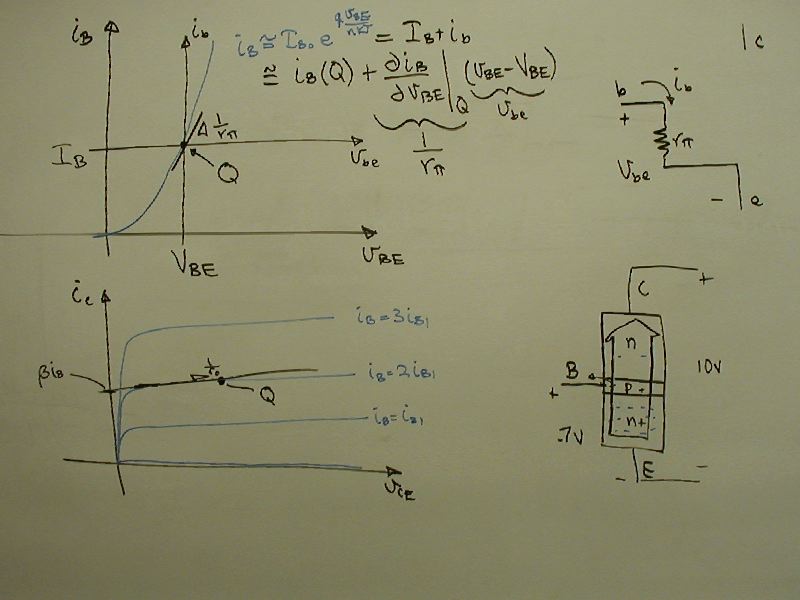 iB
ib
iB ≅ IB0 e^(qVBE/nkT) = IB + ib
≅ iB(Q) + ∂iB/∂VBE |Q (VBE - VBE)
Vbe
1/rπ
Δ 1/rπ
IB
Q
Vbe
VBE
VBE
c
b
ib
+
rπ
Vbe
-
e
ic
iB = 3iB1
βiB
1/ro
iB = 2iB1
Q
iB = iB1
VCE
C
+
n
10V
B
+
P+
n+
.7V
E
-
-